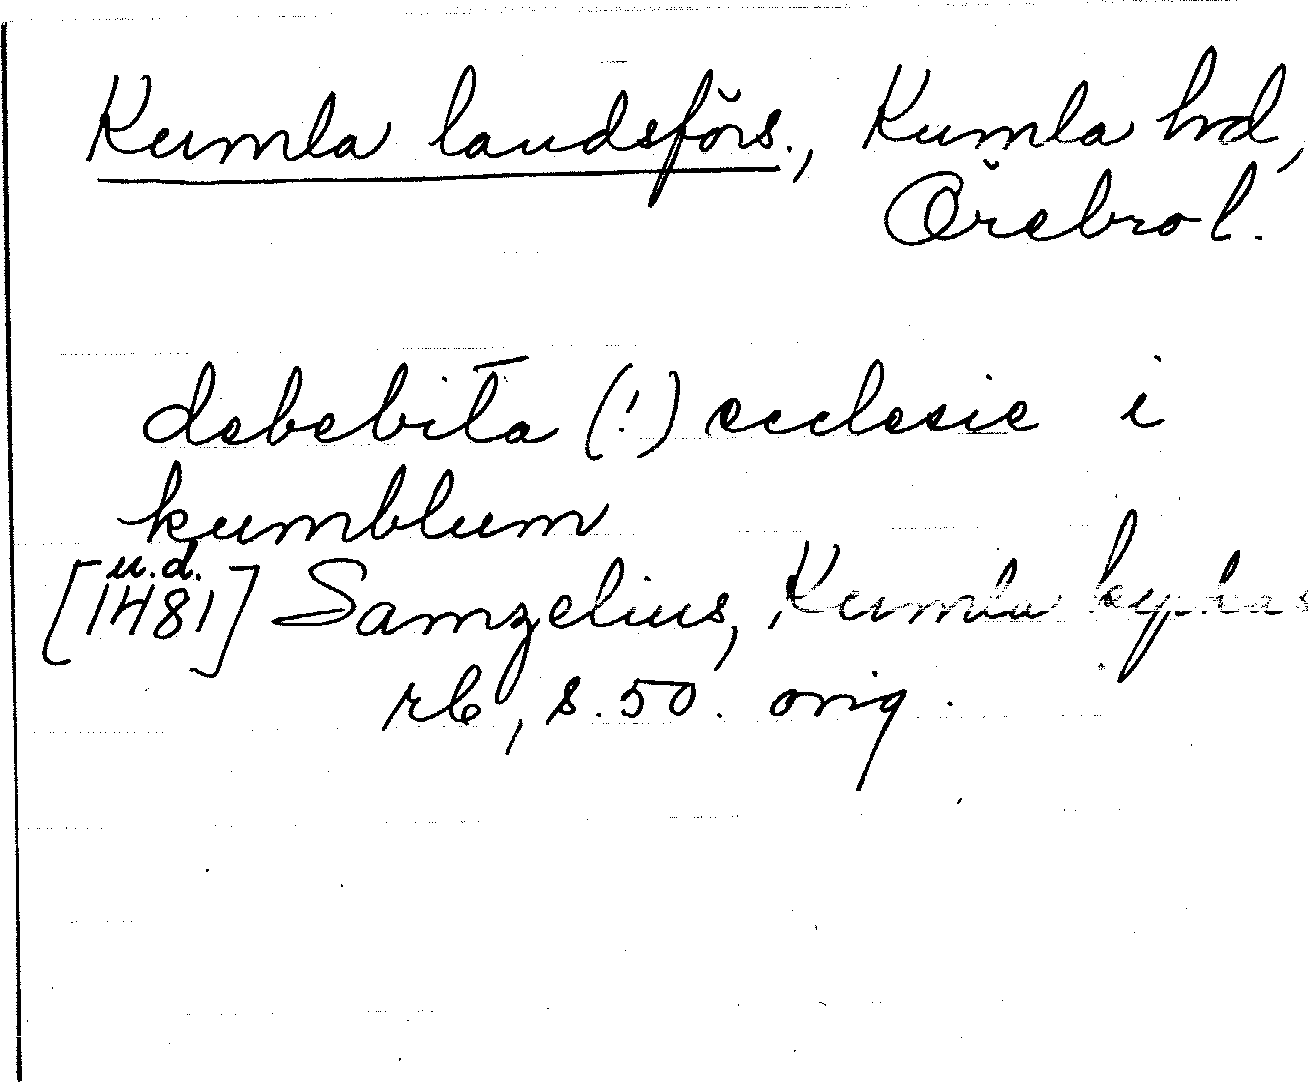 Kumla landsförs., Kumla hrd,
Örebro l.
debebit̄a (!) ecclesie i
kumblum
u.d.
[1481] Samzelius, Kumla kyrkas
rb, s. 50. orig.